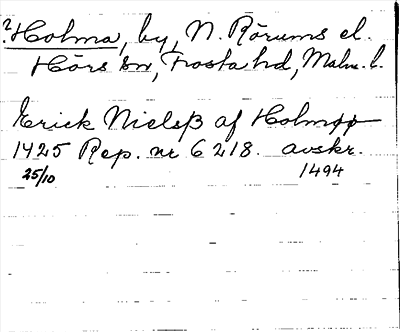 ? Holma, by, N. Rörums el.
Hörs sn, Frosta hd, Malm. l.
Erick Nielsß af Holmøø
1425 Rep. nr 6218. avskr.
25/10 1494